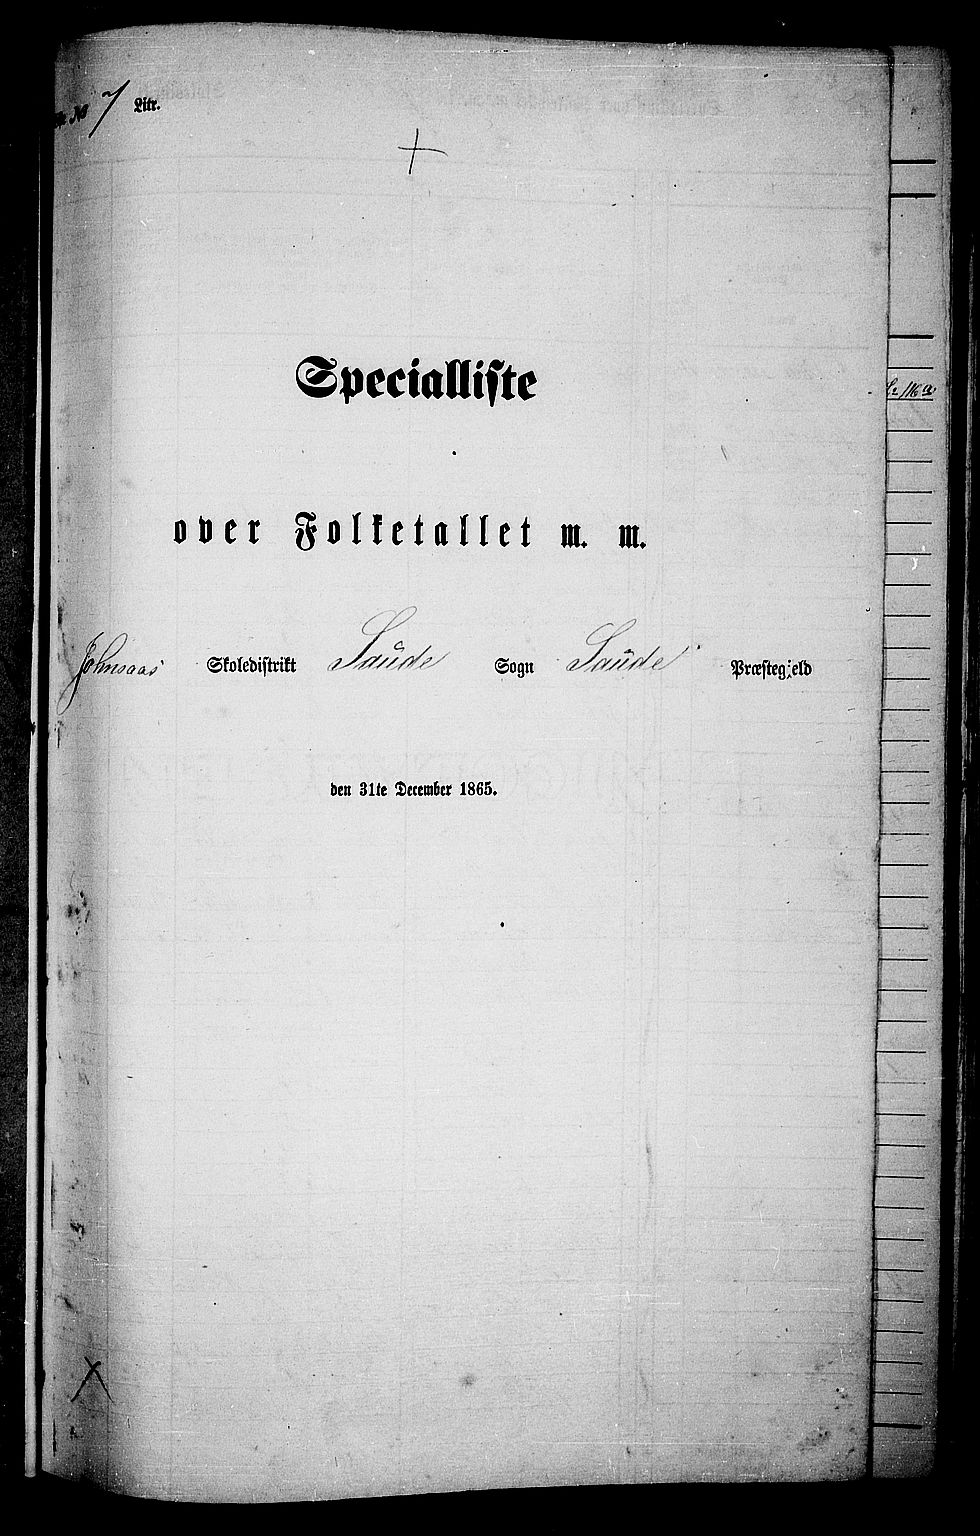 № 7 Litr.
Specialliste
over Folketallet m. m.
Johnsaas Skoledistrikt Saude Sogn Saude Præstegjeld
den 31te December 1865.
116 a